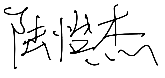 陆恺杰